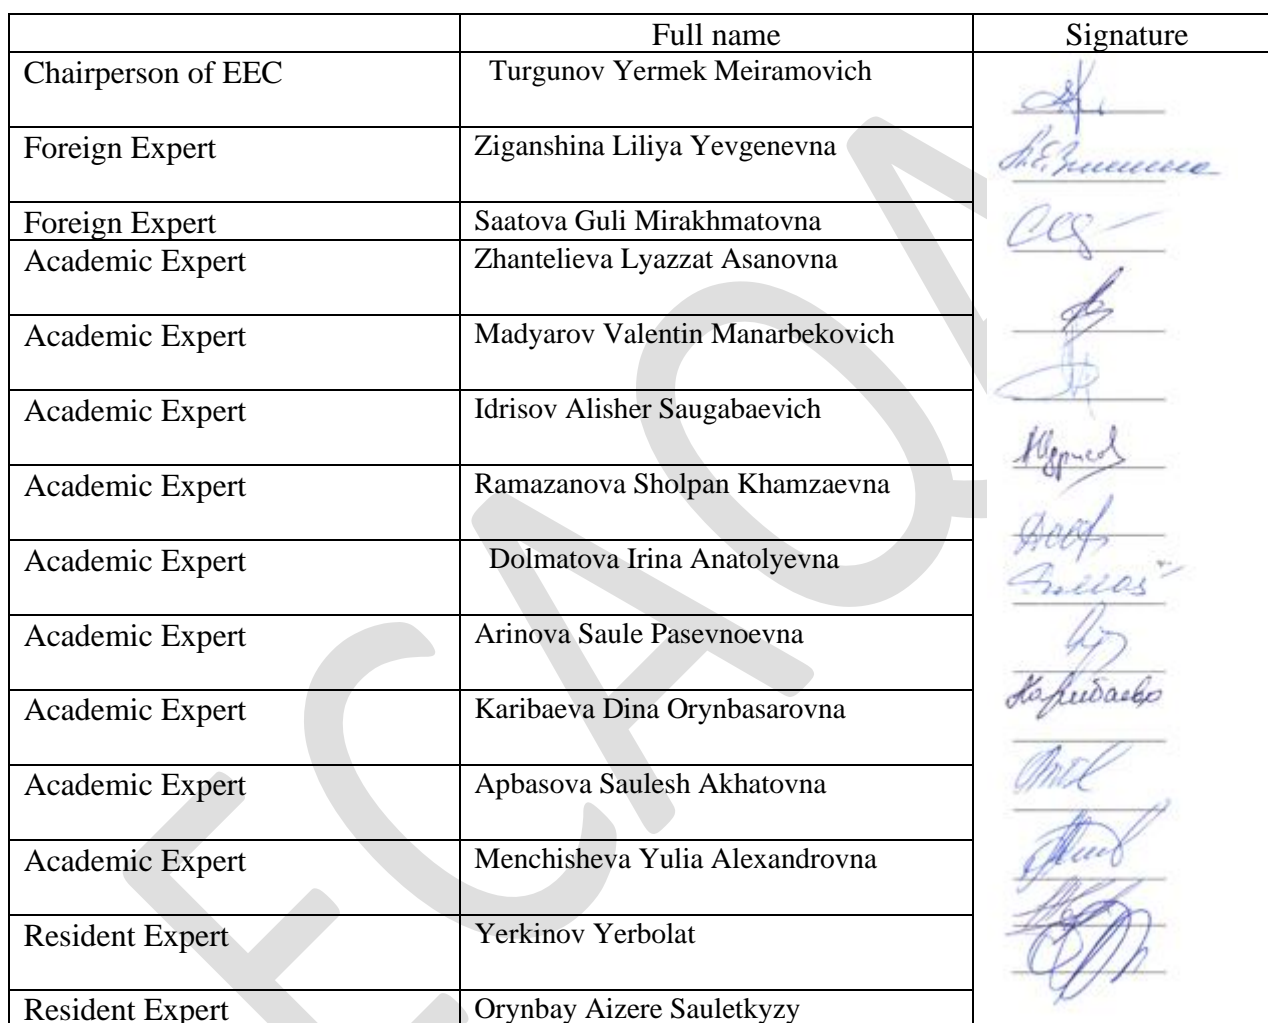 Full name Signature
Chairperson of EEC Turgunov Yermek Meiramovich
Foreign Expert Ziganshina Liliya Yevgenevna
Foreign Expert Saatova Guli Mirakhmatovna
Academic Expert Zhantelieva Lyazzat Asanovna
Academic Expert Madyarov Valentin Manarbekovich
Academic Expert Idrisov Alisher Saugabaevich
Academic Expert Ramazanova Sholpan Khamzaevna
Academic Expert Dolmatova Irina Anatolyevna
Academic Expert Arinova Saule Pasevnoevna
Academic Expert Karibaeva Dina Orynbasarovna
Academic Expert Apbasova Saulesh Akhatovna
Academic Expert Menchisheva Yulia Alexandrovna
Resident Expert Yerkinov Yerbolat
Resident Expert Orynbay Aizere Sauletkyzy
ECAQA